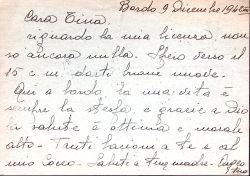 Bordo 9 Dicembre 1940
Cara Tina.
riguardo la mia licenza, non
so ancora nulla. Spero verso il
15 c. m. darti buone nuove.
Qui a bordo la mia vita è
sempre la stessa e grazie a Dio
la salute è ottima e morale
alto - Tanti bacioni a te e al
mio Cocco. Saluti a tua madre -